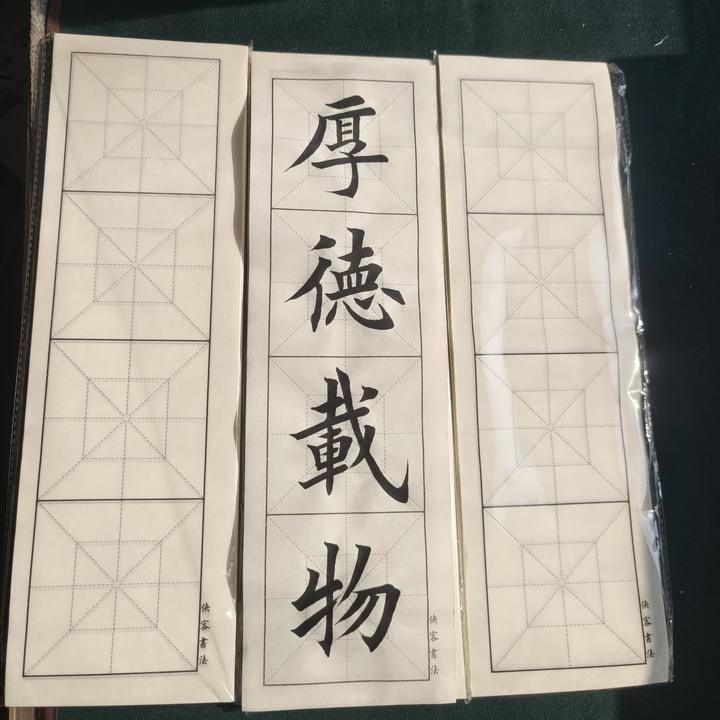 厚德載物
俠客書法
俠客書法
俠客書法